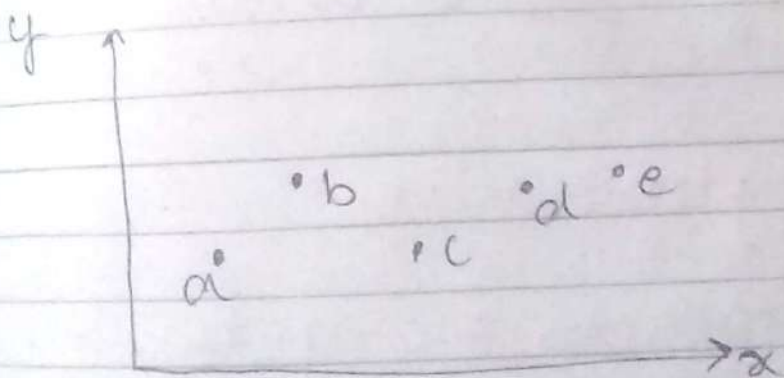 y
b
d
e
a
c
x